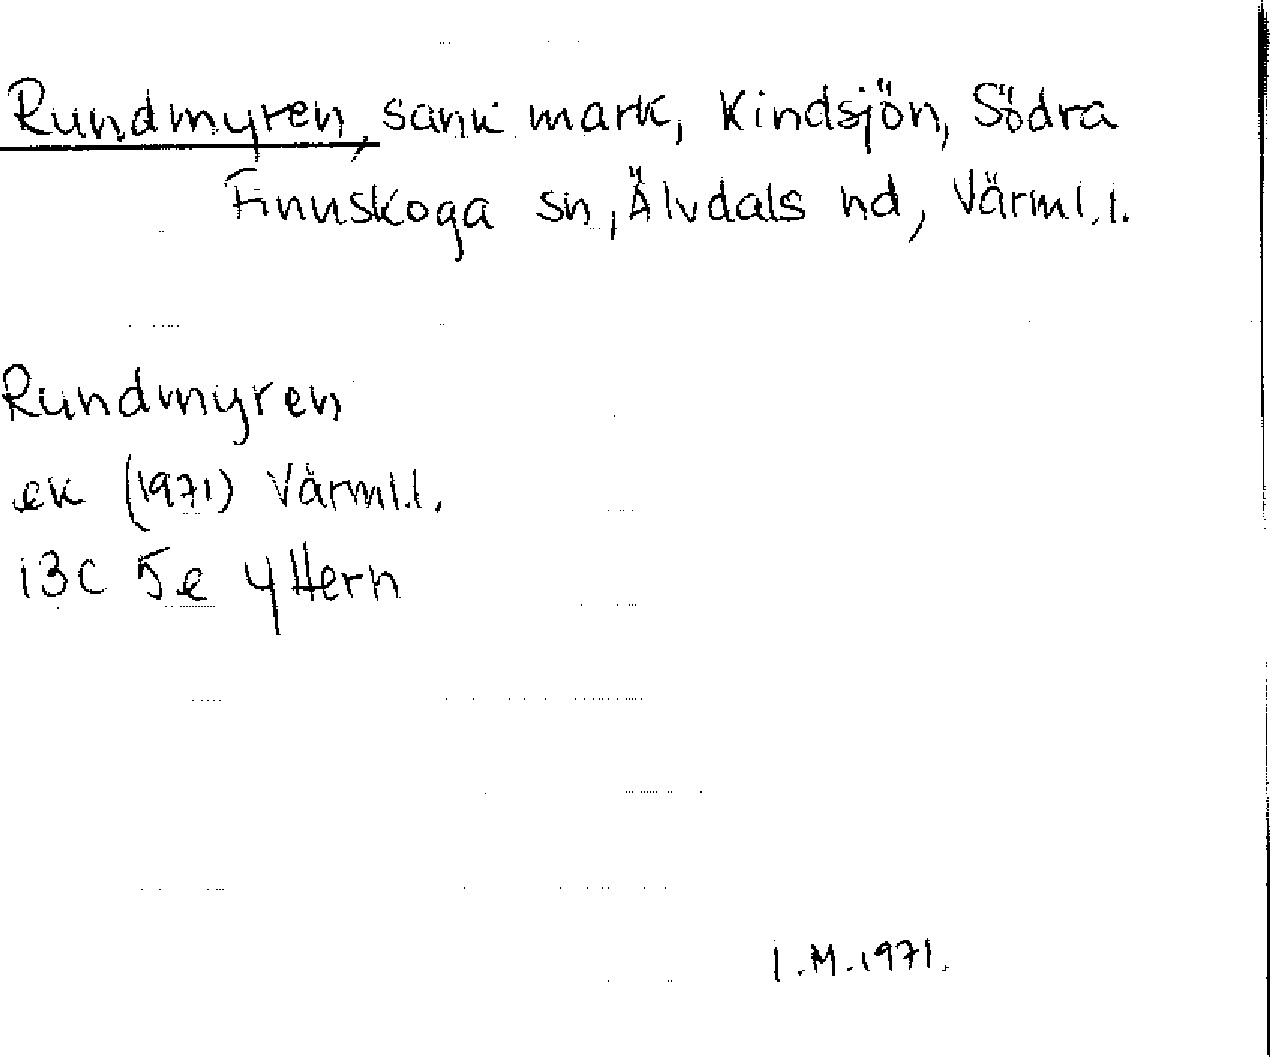 Rundmyren, sank mark, Kindsjön, Södra
Finnskoga sn, Älvdals hd, Värml.l.
Rundmyren
ek (1971) Värml.l.
13C 5e y Hern
I.M.1971.